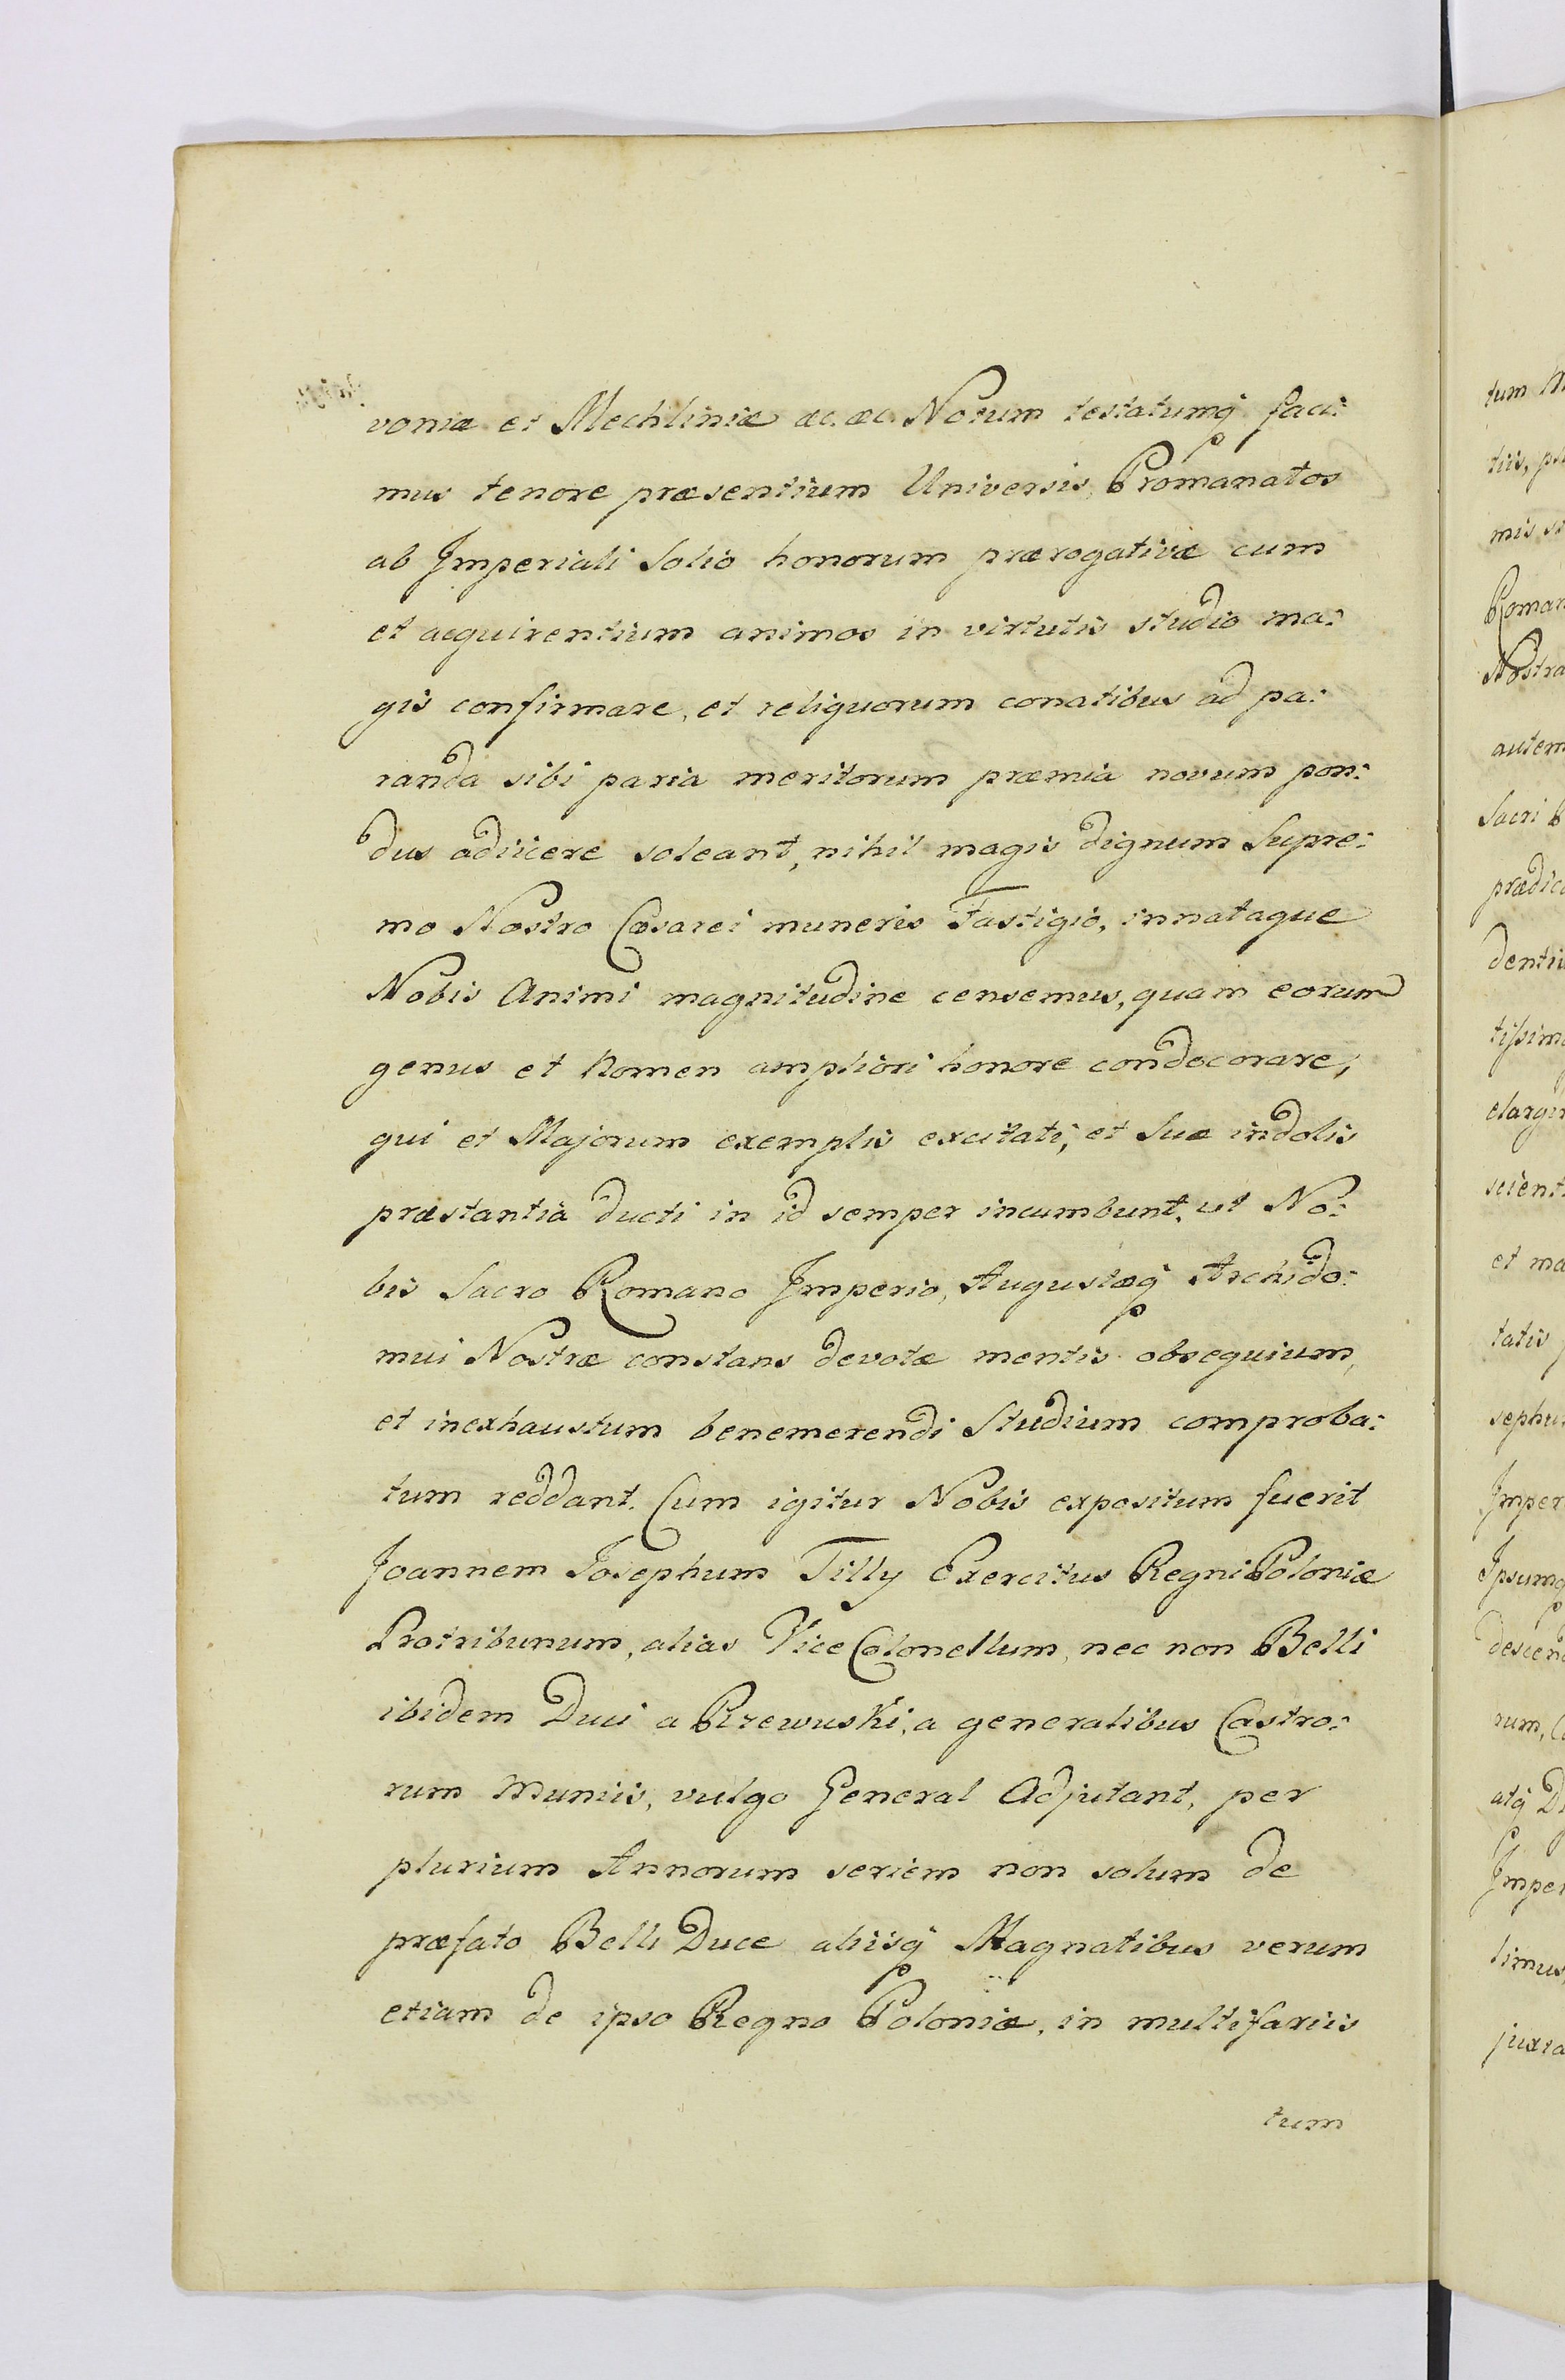 voniæ et Mechliniæ &c. &c. Notum testatumq́ faci:
mus tenore præsentium Universis, Promanatos
ab Imperiali Solio honorum prærogativæ cum
et acquirentium animos in virtutis studio ma:
gis confirmare, et reliquorum conatibus ad pa:
randa sibi paria meritorum præmia novum pon:
dus adiicere soleant, nihil magis dignum Supre:
mo Nostro Cæsarei muneris Fastigio, innataque
Nobis Animi magnitudine censemus, quam eorum
genus et Nomen ampliori honore condecorare,
qui et Majorum exemplis excitati, et Suæ indolis
præstantiâ ducti in id semper incumbunt, ut No:
bis Sacro Romano Imperio, Augustæq́ Archido:
mui Nostræ constans devotæ mentis obsequium,
et inexhaustum benemerendi Studium comproba:
tum reddant. Cum igitur Nobis expositum fuerit
Joannem Josephum Tilly Exercitus Regni Poloniæ
Protribunum, alias Vice Colonellum, nec non Belli
ibidem Duci a Rzewuski, a generalibus Castro:
rum Muniis, vulgo General Adjutant, per
plurium Annorum seriem non solum de
præfato Belli Duce aliisq́ Magnatibus verum
etiam de ipso Regno Poloniæ, in multifariis
tum
tum
tiis,
mis
Roman
Nostra
autem
Sacri
prædic
denti
tissim
elargi
scient
et ma
tatis
sephu
Imper
Ipsumq́
descend
rum,
atq́ D
Imper
limus,
juxta